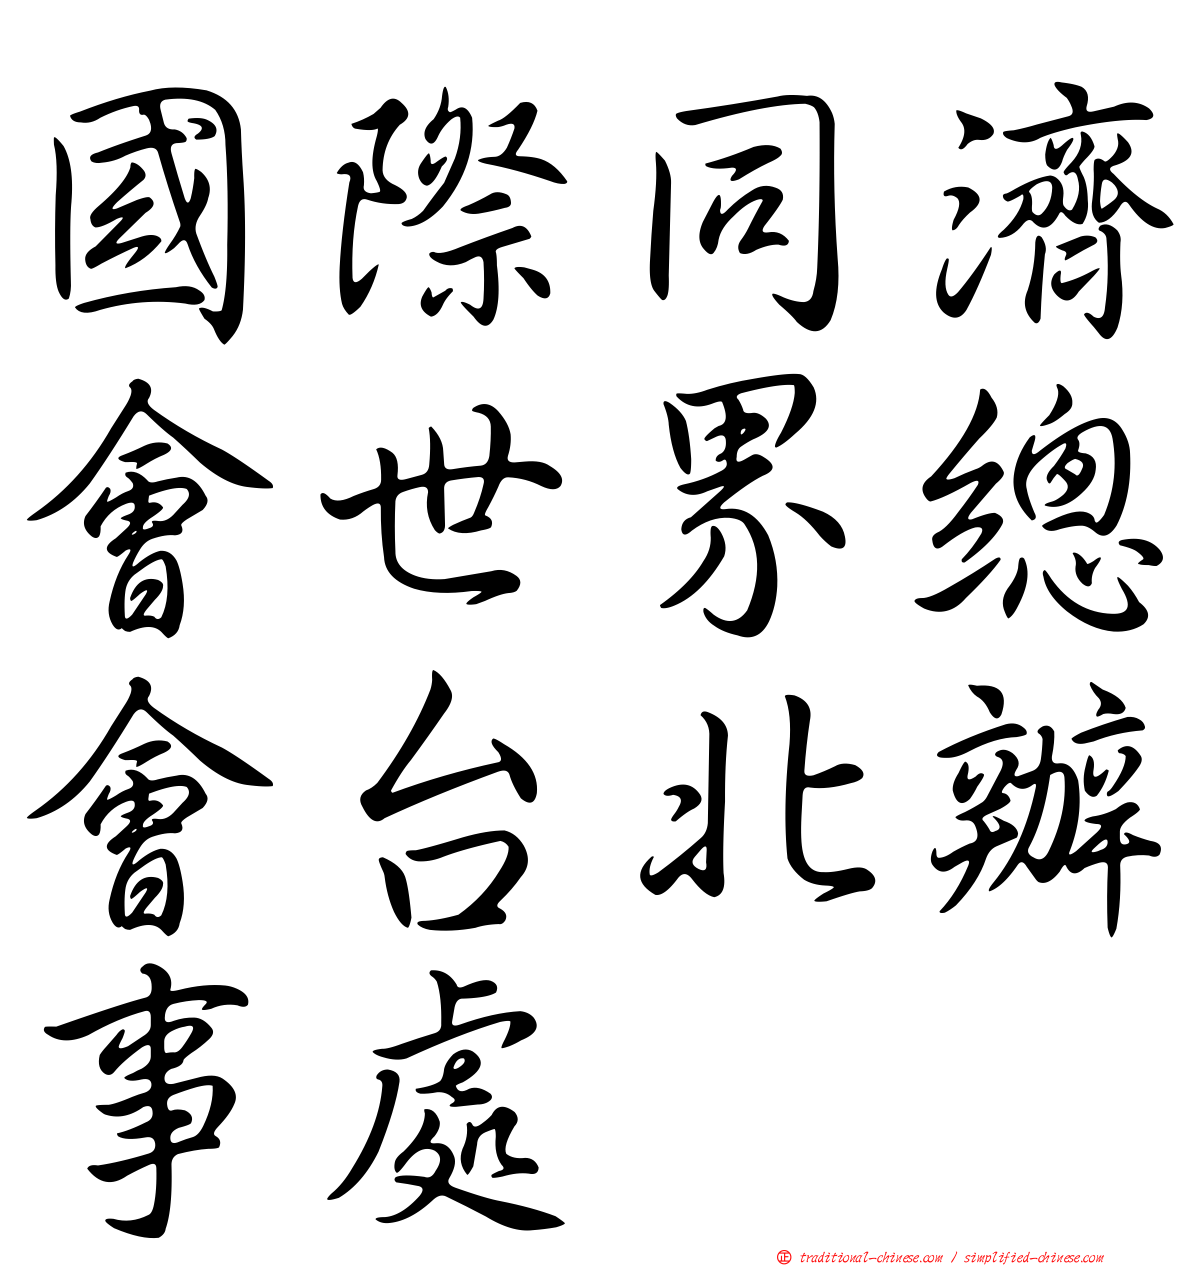 國際同濟
會世界總
會台北辦
事處
正 traditional-chinese.com / simplified-chinese.com